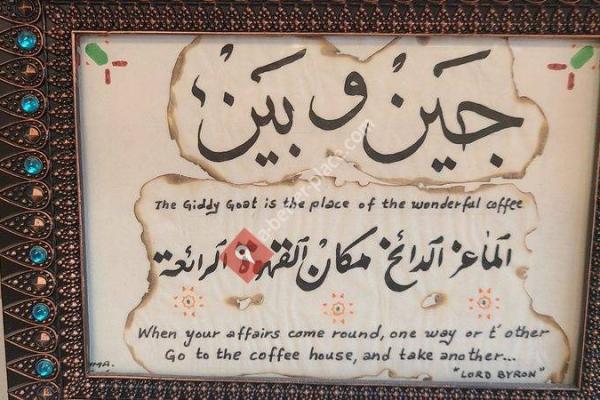 جَين و بَين
The Giddy Goat is the place of the wonderful coffee
الماعز الدائخ مكان القهوة الرائعة
When your affairs come round, one way or t' other
Go to the coffee house, and take another...
"LORD BYRON"